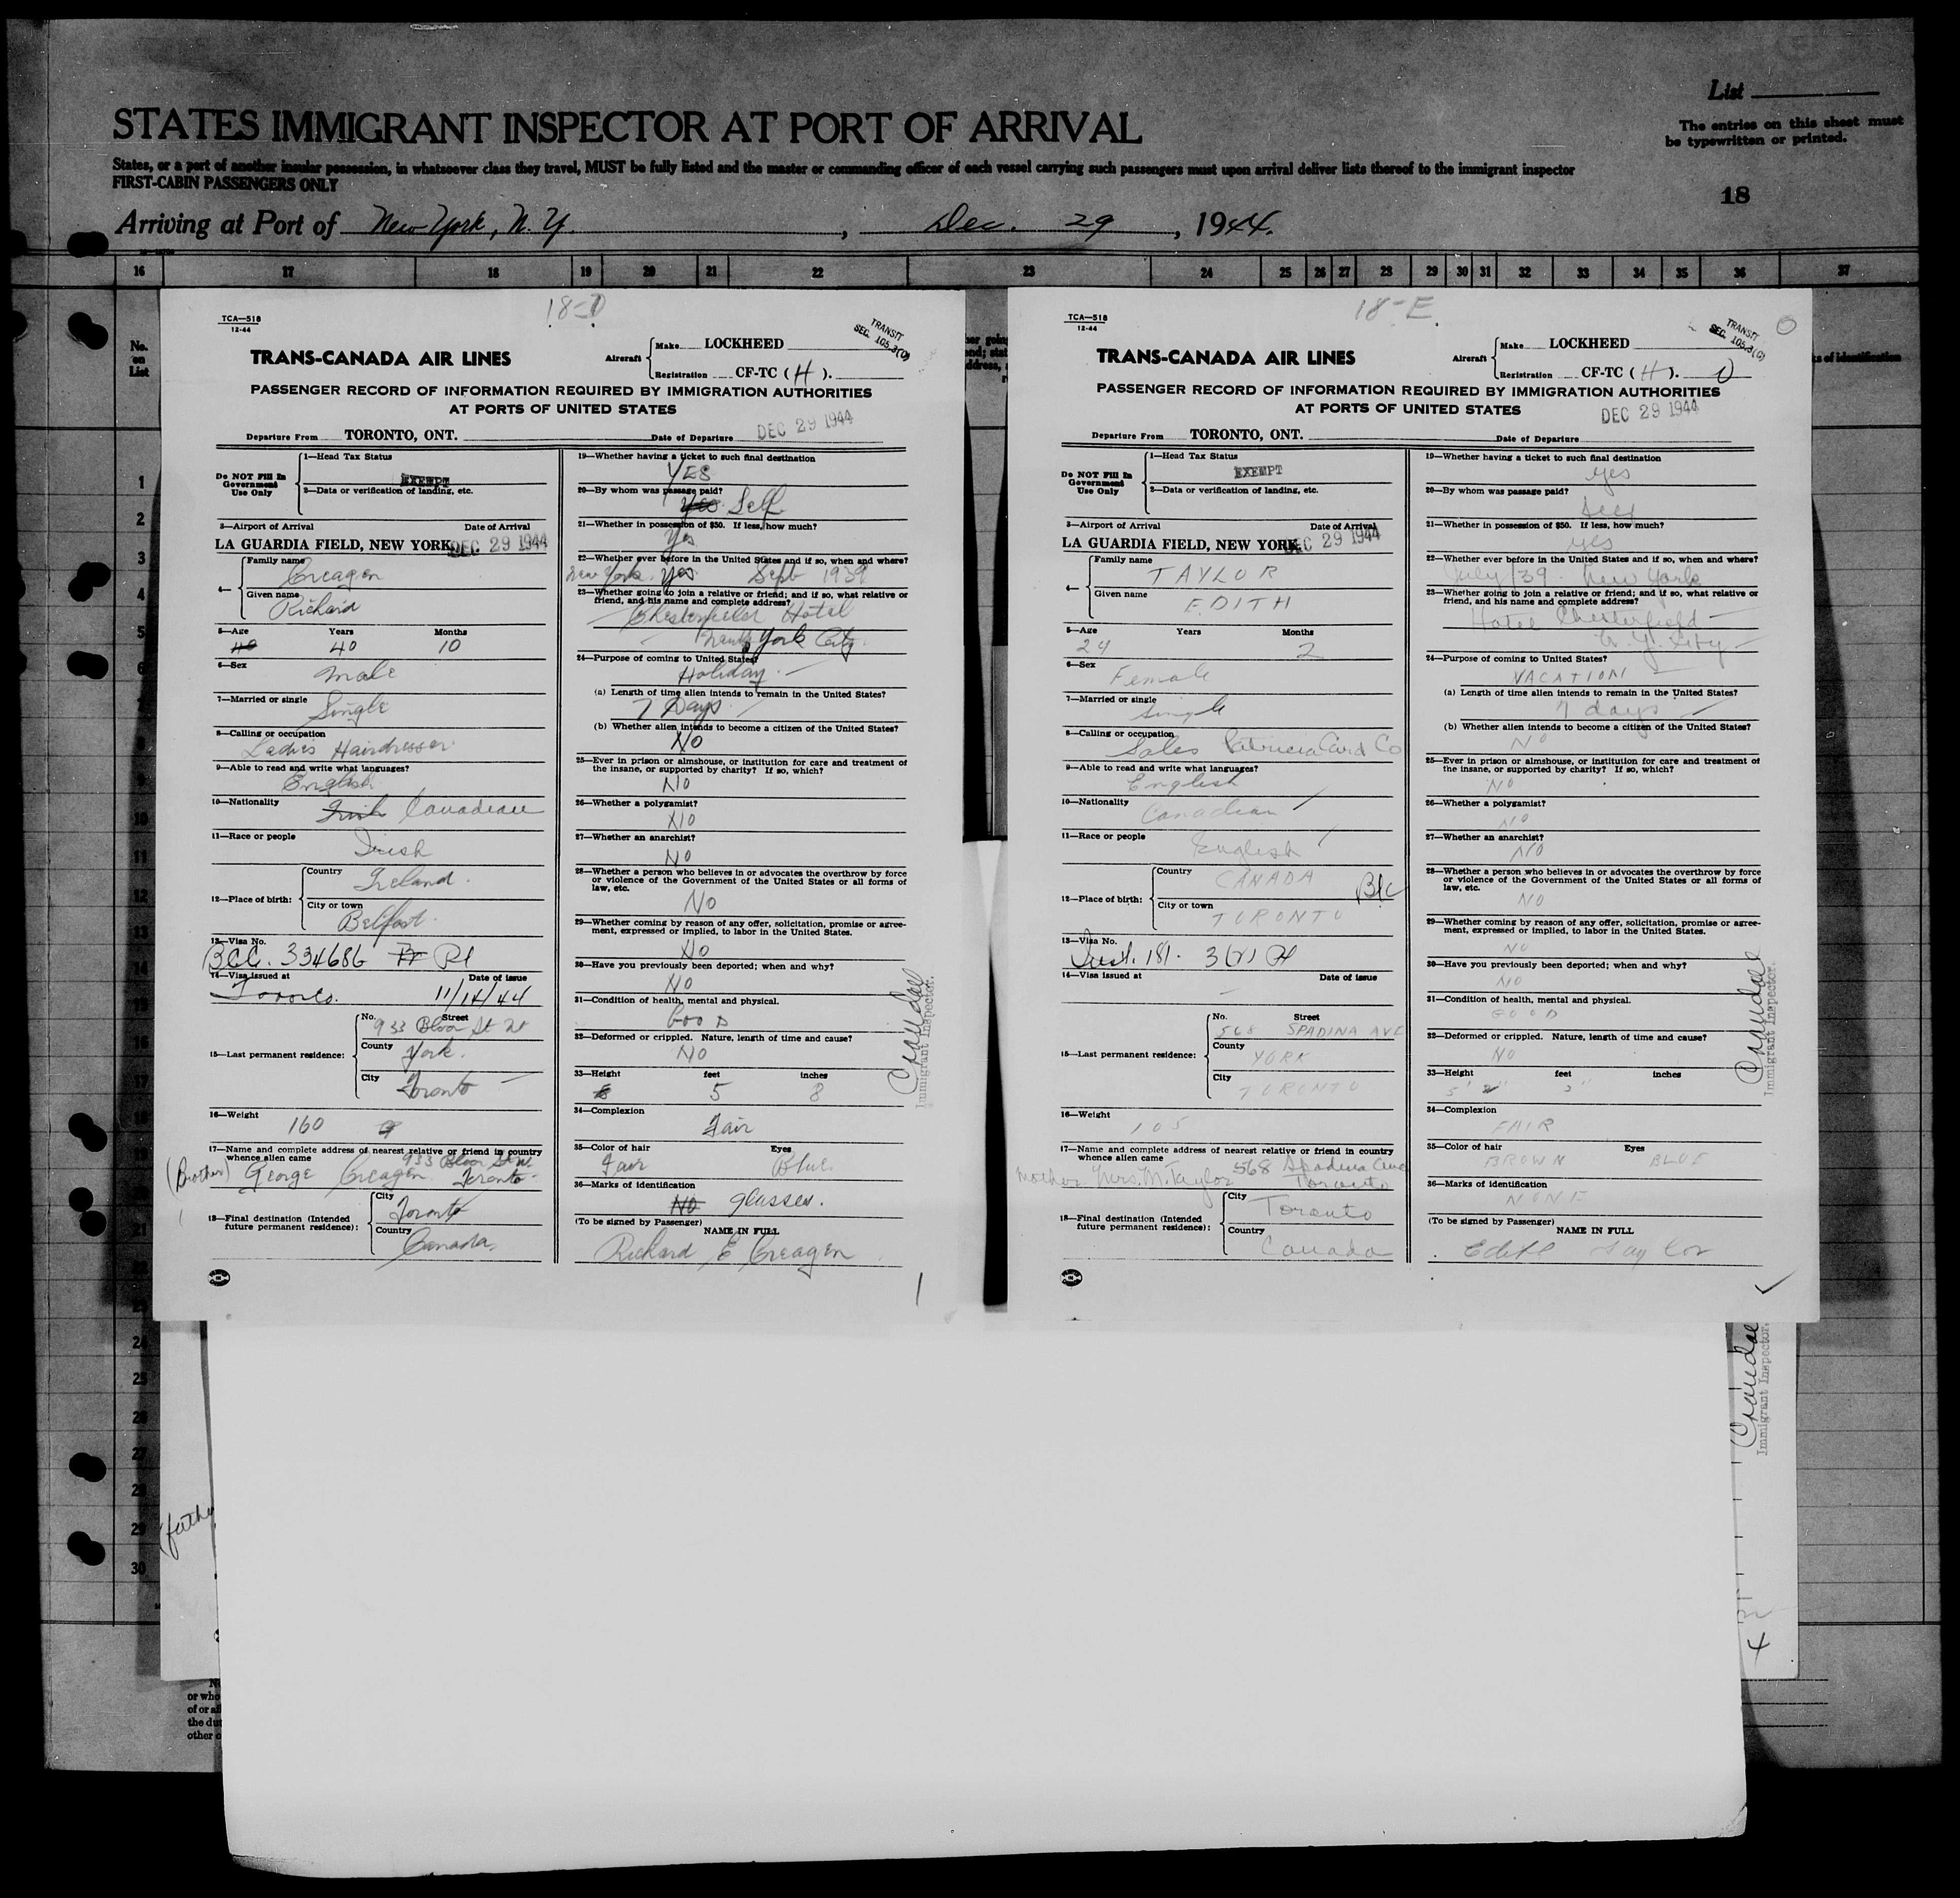 List
STATES IMMIGRANT INSPECTOR AT PORT OF ARRIVAL
The entries on this sheet must
be typewritten or printed.
States, or a port of another insular possession, in whatsoever class they travel, MUST be fully listed and the master or commanding officer of each vessel carrying such passengers must upon arrival deliver lists thereof to the immigrant inspector
FIRST-CABIN PASSENGERS ONLY
18
Arriving at Port of New York, N.Y. , Dec. 29 , 1944.
16 17 18 19 20 21 22 23 24 25 26 27 28 29 30 31 32 33 34 35 36 37
No. on List
18-D
TCA—518
12-44
TRANSIT
SEC. 105.3(C)
TRANS-CANADA AIR LINES
Aircraft Make LOCKHEED
Registration CF-TC ( H ).
PASSENGER RECORD OF INFORMATION REQUIRED BY IMMIGRATION AUTHORITIES
AT PORTS OF UNITED STATES
Departure From TORONTO, ONT. Date of Departure DEC 29 1944
Do NOT Fill In Government Use Only
1—Head Tax Status
EXEMPT
2—Data or verification of landing, etc.
3—Airport of Arrival Date of Arrival
LA GUARDIA FIELD, NEW YORK DEC 29 1944
4— Family name Creagen
Given name Richard
5—Age Years Months
40 40 10
6—Sex
Male
7—Married or single
Single
8—Calling or occupation
Ladies Hairdresser
9—Able to read and write what languages?
English
10—Nationality Irish Canadian
11—Race or people
Irish
12—Place of birth: Country Ireland.
City or town
Belfast.
13—Visa No.
BCC. 334686 Pl
14—Visa issued at Date of issue
Toronto. 11/14/44
15—Last permanent residence: No. Street
933 Bloor St W
County York.
City Toronto
16—Weight 160
17—Name and complete address of nearest relative or friend in country
whence alien came 933 Bloor St W.
(Brother) George Creagen Toronto
18—Final destination (Intended
future permanent residence): City Toronto
Country Canada.
19—Whether having a ticket to such final destination
YES
20—By whom was passage paid?
Yes Self
21—Whether in possession of $50. If less, how much?
Yes
22—Whether ever before in the United States and if so, when and where?
New York. Yes. Sept 1939
23—Whether going to join a relative or friend; and if so, what relative or
friend, and his name and complete address?
Chesterfield Hotel
New York City.
24—Purpose of coming to United States?
Holiday.
(a) Length of time alien intends to remain in the United States?
7 Days.
(b) Whether alien intends to become a citizen of the United States?
NO
25—Ever in prison or almshouse, or institution for care and treatment of
the insane, or supported by charity? If so, which?
NO
26—Whether a polygamist?
NO
27—Whether an anarchist?
NO
28—Whether a person who believes in or advocates the overthrow by force
or violence of the Government of the United States or all forms of
law, etc.
NO
29—Whether coming by reason of any offer, solicitation, promise or agree-
ment, expressed or implied, to labor in the United States.
NO
30—Have you previously been deported; when and why?
NO
31—Condition of health, mental and physical.
GOOD
32—Deformed or crippled. Nature, length of time and cause?
NO
33—Height feet inches
5 8
34—Complexion
Fair
35—Color of hair Eyes
Fair Blue
36—Marks of identification
NO glasses.
(To be signed by Passenger)
NAME IN FULL
Richard E Creagen
Crandal
Immigrant Inspector.
18-E
TCA—518
12-44
TRANSIT
SEC. 105.3(C)
TRANS-CANADA AIR LINES
Aircraft Make LOCKHEED
Registration CF-TC ( H ).
PASSENGER RECORD OF INFORMATION REQUIRED BY IMMIGRATION AUTHORITIES
AT PORTS OF UNITED STATES
DEC 29 1944
Departure From TORONTO, ONT. Date of Departure
Do NOT Fill In Government Use Only
1—Head Tax Status
EXEMPT
2—Data or verification of landing, etc.
3—Airport of Arrival Date of Arrival
LA GUARDIA FIELD, NEW YORK DEC 29 1944
4— Family name
TAYLOR
Given name
EDITH
5—Age Years Months
24 2
6—Sex
Female
7—Married or single
Single
8—Calling or occupation
Sales Patricia Card Co
9—Able to read and write what languages?
English
10—Nationality
Canadian
11—Race or people
English
12—Place of birth: Country CANADA
City or town
TORONTO
13—Visa No.
14—Visa issued at Date of issue
15—Last permanent residence: No. Street
568 SPADINA AVE
County YORK
City TORONTO
16—Weight
105
17—Name and complete address of nearest relative or friend in country
whence alien came
mother Mrs. M. Taylor 568 Spadina Ave
Toronto
18—Final destination (Intended
future permanent residence): City Toronto
Country Canada
19—Whether having a ticket to such final destination
Yes
20—By whom was passage paid?
Self
21—Whether in possession of $50. If less, how much?
Yes
22—Whether ever before in the United States and if so, when and where?
July/39 New York
23—Whether going to join a relative or friend; and if so, what relative or
friend, and his name and complete address?
Hotel Chesterfield
N.Y. City
24—Purpose of coming to United States?
VACATION
(a) Length of time alien intends to remain in the United States?
7 days
(b) Whether alien intends to become a citizen of the United States?
NO
25—Ever in prison or almshouse, or institution for care and treatment of
the insane, or supported by charity? If so, which?
NO
26—Whether a polygamist?
NO
27—Whether an anarchist?
NO
28—Whether a person who believes in or advocates the overthrow by force
or violence of the Government of the United States or all forms of
law, etc.
NO
29—Whether coming by reason of any offer, solicitation, promise or agree-
ment, expressed or implied, to labor in the United States.
NO
30—Have you previously been deported; when and why?
NO
31—Condition of health, mental and physical.
GOOD
32—Deformed or crippled. Nature, length of time and cause?
NO
33—Height feet inches
5' 2"
34—Complexion
FAIR
35—Color of hair Eyes
BROWN BLUE
36—Marks of identification
NONE
(To be signed by Passenger)
NAME IN FULL
Edith Taylor
Crandal
Immigrant Inspector.
Crandal
Immigrant Inspector.